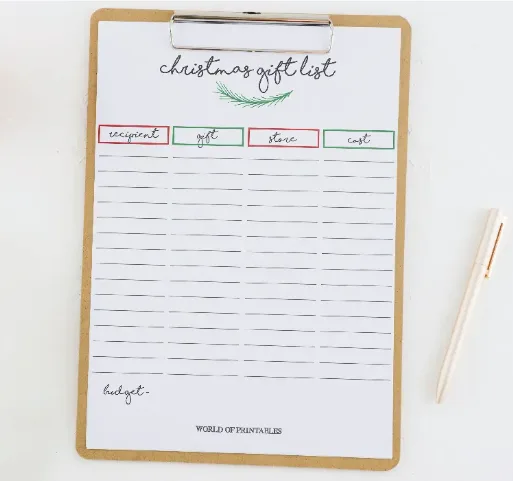 christmas gift list
recipient gift store cost
budget-
WORLD OF PRINTABLES